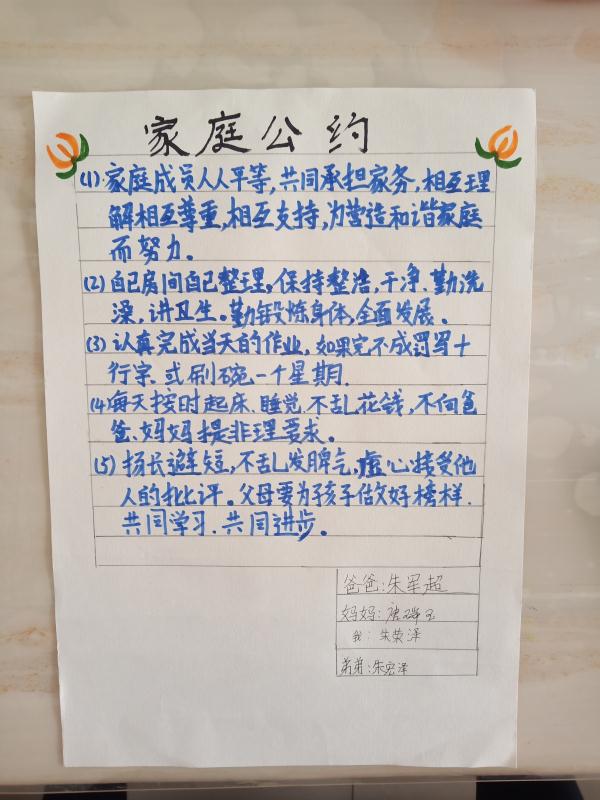 家庭公约
(1)家庭成员人人平等,共同承担家务,相互理
解相互尊重,相互支持,为营造和谐家庭
而努力。
(2)自己房间自己整理,保持整洁,干净、勤洗
澡,讲卫生。勤锻炼身体,全面发展。
(3)认真完成当天的作业,如果完不成罚写十
行字.或刷碗一个星期.
(4)每天按时起床.睡觉.不乱花钱,不向爸
爸、妈妈提非理要求。
(5)扬长避短,不乱发脾气,虚心接受他
人的批评。父母要为孩子做好榜样.
共同学习.共同进步。
爸爸:朱军超
妈妈:唐
我:朱荣泽
弟弟:朱宏泽